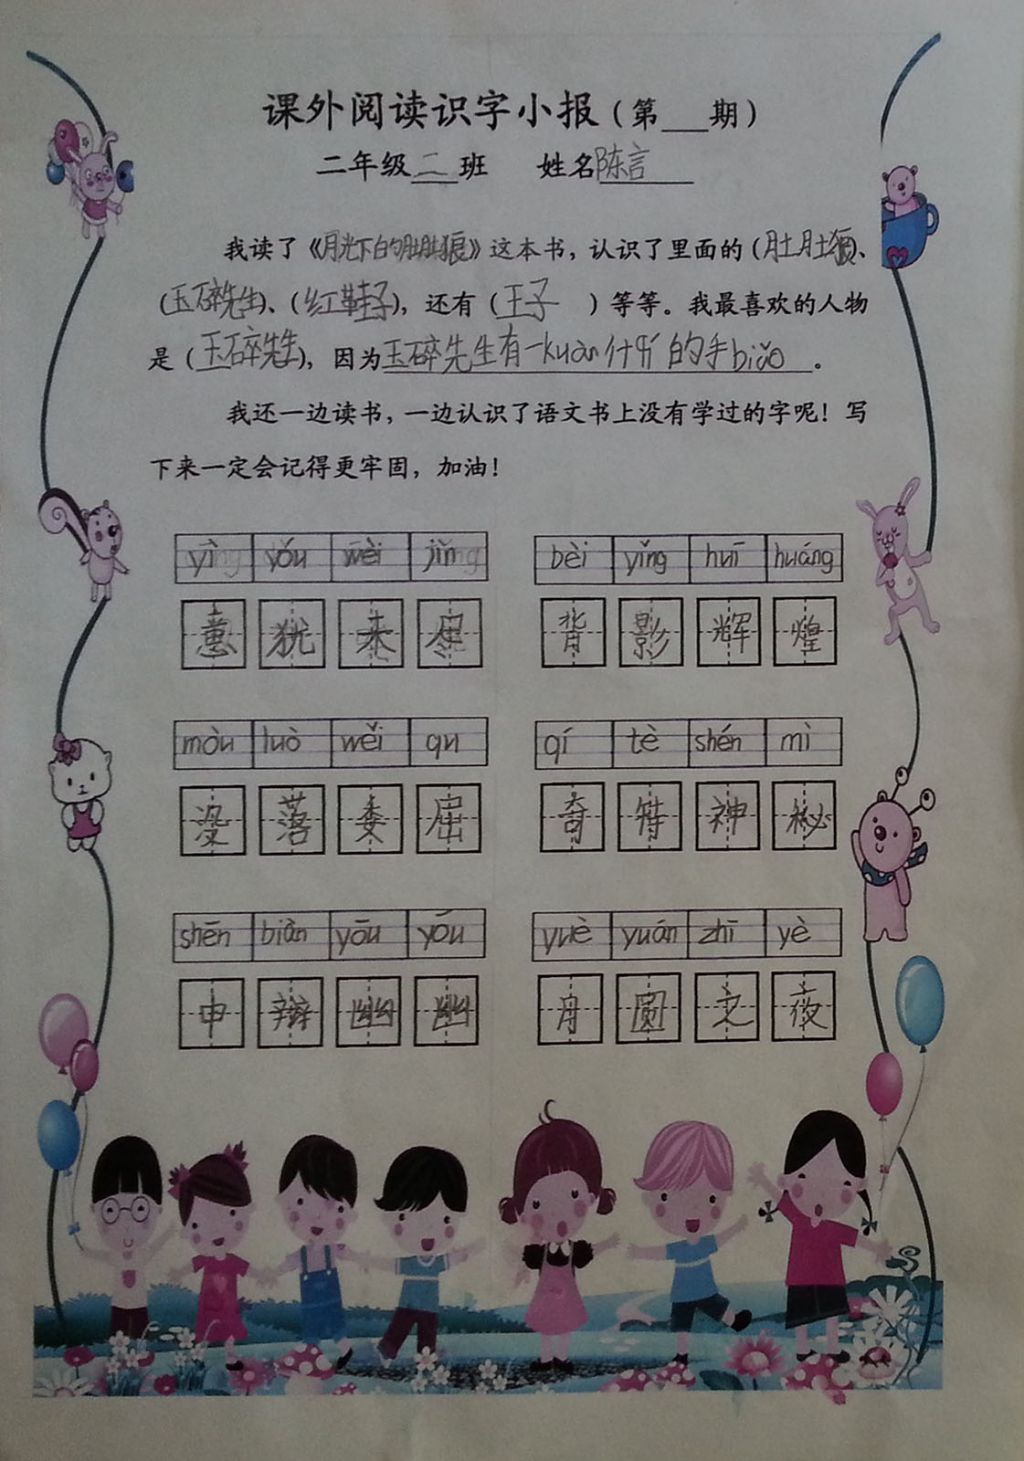 课外阅读识字小报（第___期）
二年级二班 姓名陈言
我读了《月光下的肚肚狼》这本书，认识了里面的（肚肚狼）、
（玉碎先生）、（红鞋子），还有（王子）等等。我最喜欢的人物
是（玉碎先生），因为玉碎先生有一kuàn什么的手biǎo。
我还一边读书，一边认识了语文书上没有学过的字呢！写
下来一定会记得更牢固，加油！
yì yóu wèi jǐn bèi yǐng huī huáng
意 犹 未 尽 背 影 辉 煌
mòu luò wěi qu qí tè shén mì
没 落 委 屈 奇 特 神 秘
shēn biàn yōu yóu yuè yuán zhī yè
申 辩 幽 幽 月 圆 之 夜